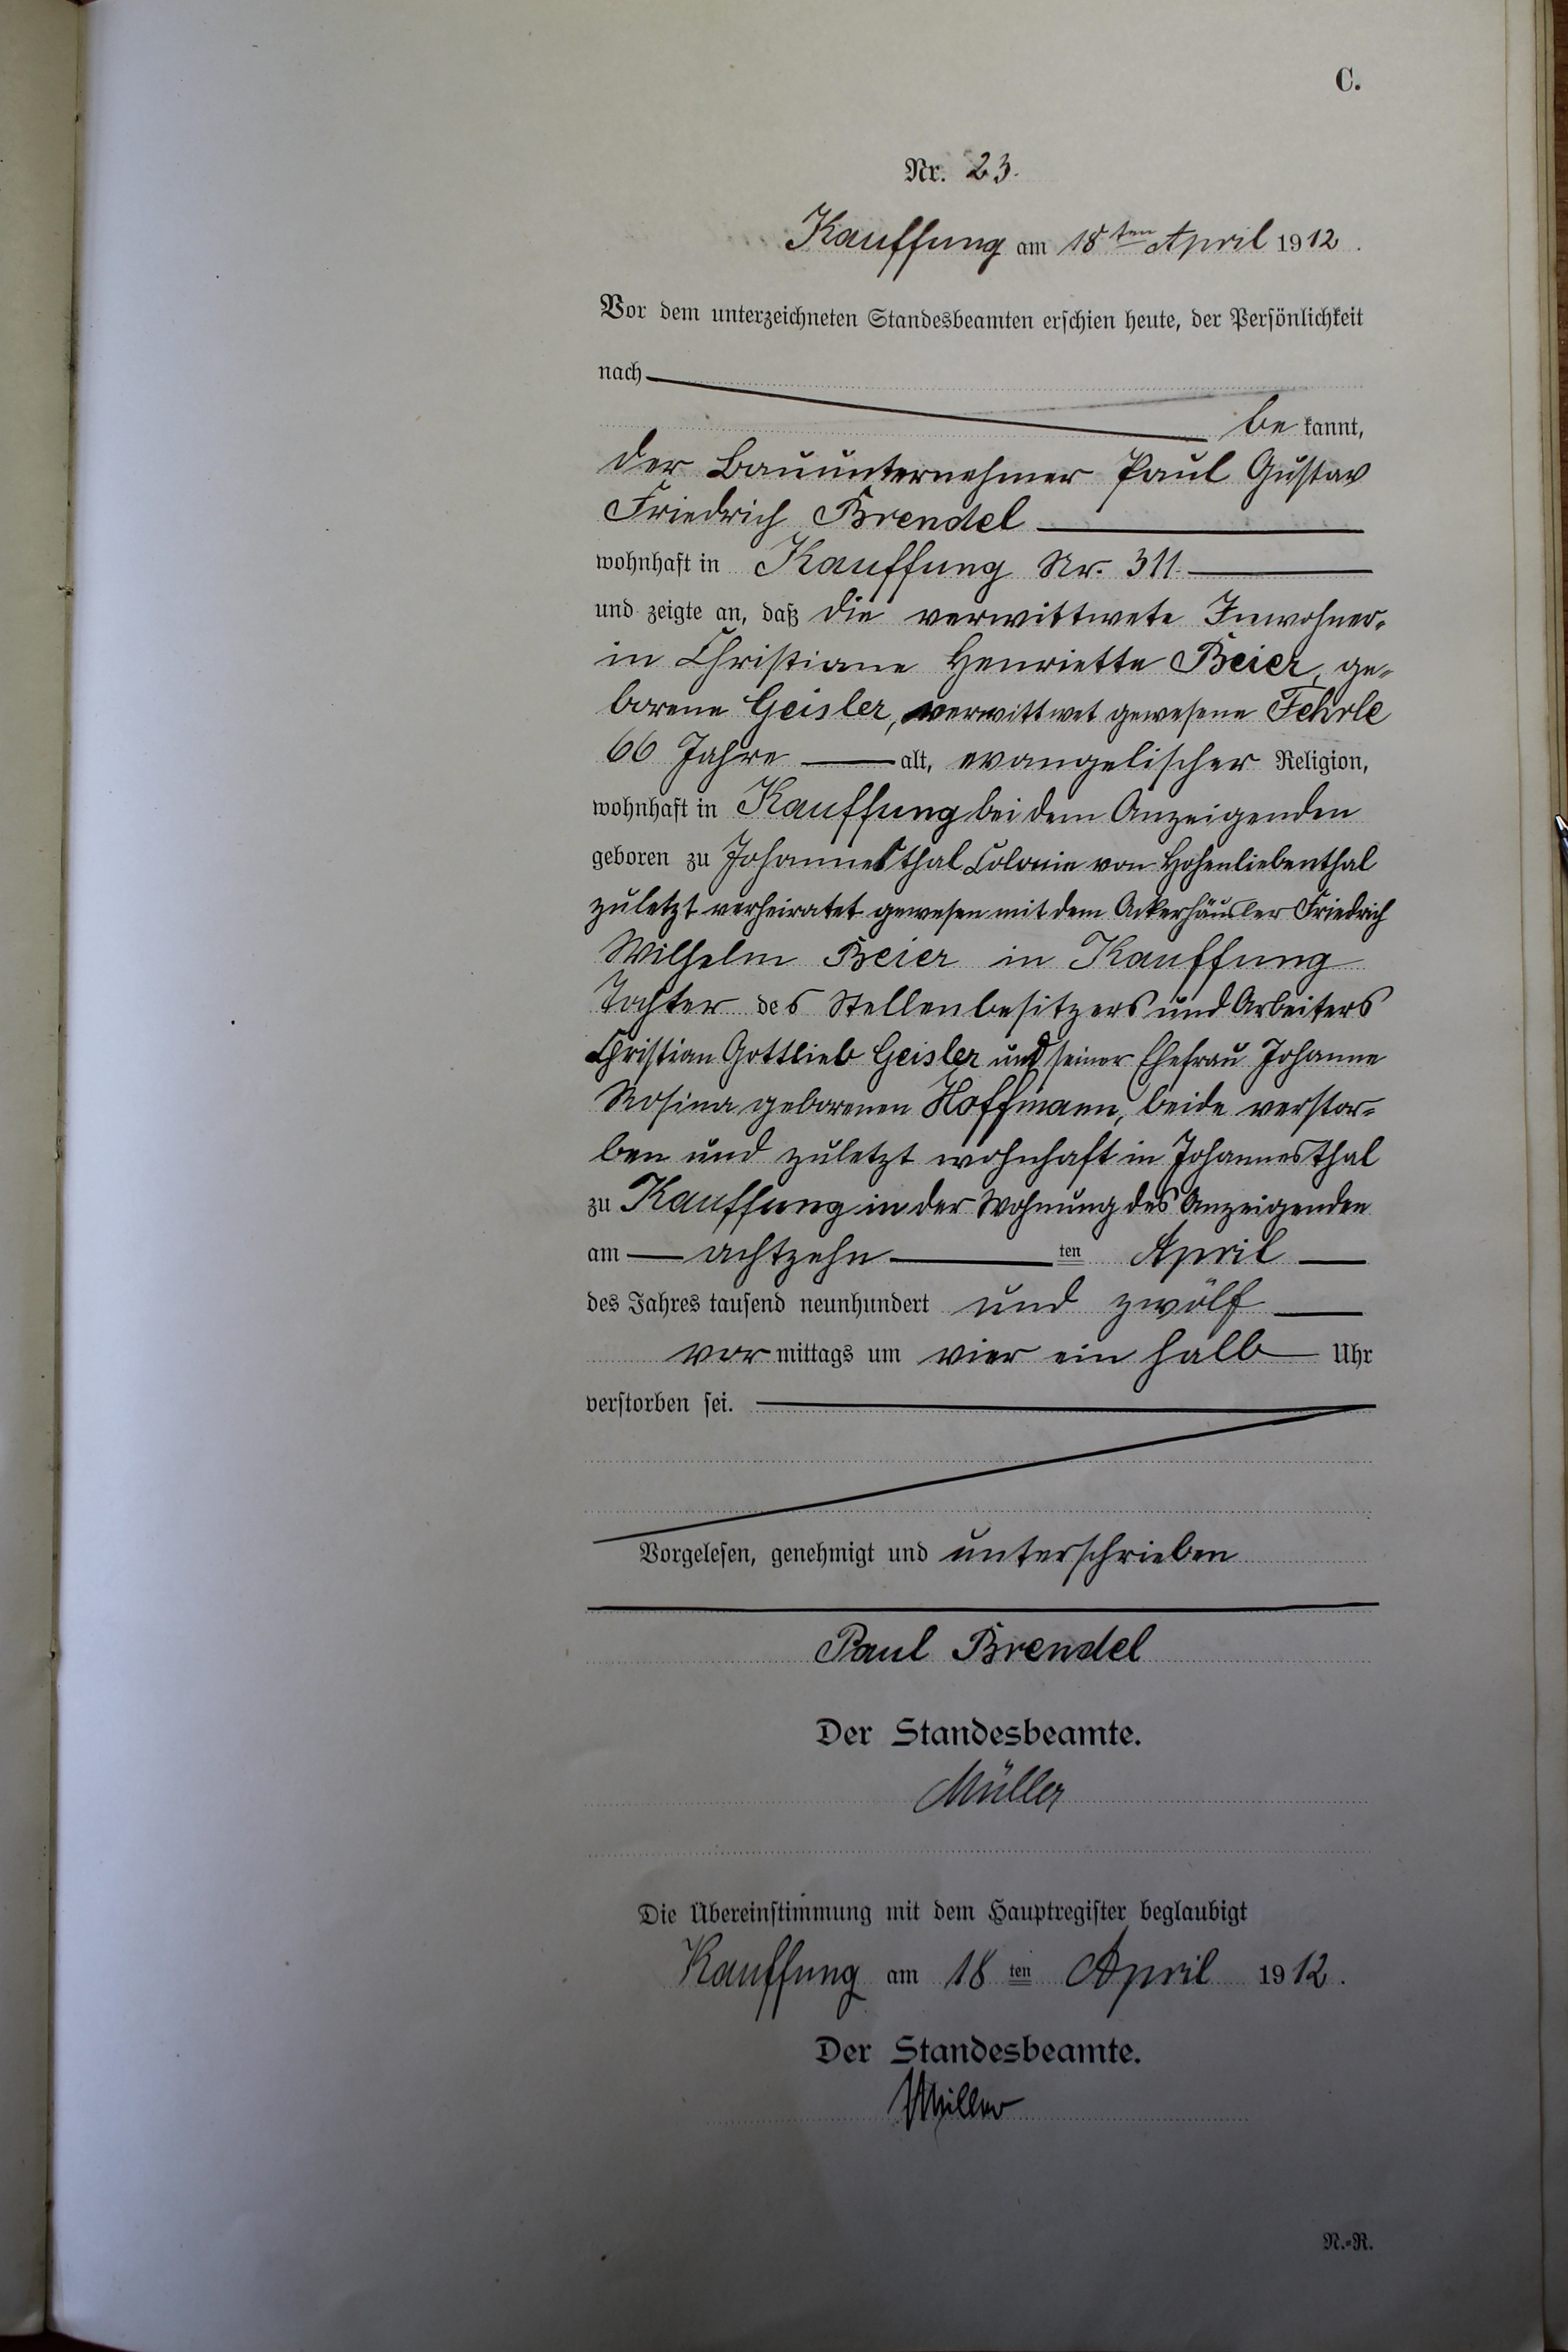 C.
Nr. 23.
Kauffung am 18ten April 1912.
Vor dem unterzeichneten Standesbeamten erschien heute, der Persönlichkeit
nach
be kannt,
der Bauunternehmer Paul Gustav
Friedrich Brendel
wohnhaft in Kauffung Nr. 311.
und zeigte an, daß die verwittwete Inwohner-
in Christiane Henriette Beier, ge-
borene Geisler, verwittwet gewesene Fehrle
66 Jahre alt, evangelischer Religion,
wohnhaft in Kauffung bei dem Anzeigenden
geboren zu Johannesthal Colonie von Hohenliebenthal
zuletzt verheiratet gewesen mit dem Ackerhäusler Friedrich
Wilhelm Beier in Kauffung
Tochter des Stellenbesitzers und Arbeiters
Christian Gottlieb Geisler und seiner Ehefrau Johanne
Rosina geborenen Hoffmann, beide verstor-
ben und zuletzt wohnhaft in Johannesthal
zu Kauffung in der Wohnung des Anzeigenden
am achtzehn ten April
des Jahres tausend neunhundert und zwölf
vor mittags um vier ein halb Uhr
verstorben sei.
Vorgelesen, genehmigt und unterschrieben
Paul Brendel
Der Standesbeamte.
Müller
Die Übereinstimmung mit dem Hauptregister beglaubigt
Kauffung am 18 ten April 1912.
Der Standesbeamte.
Müller
N.-R.